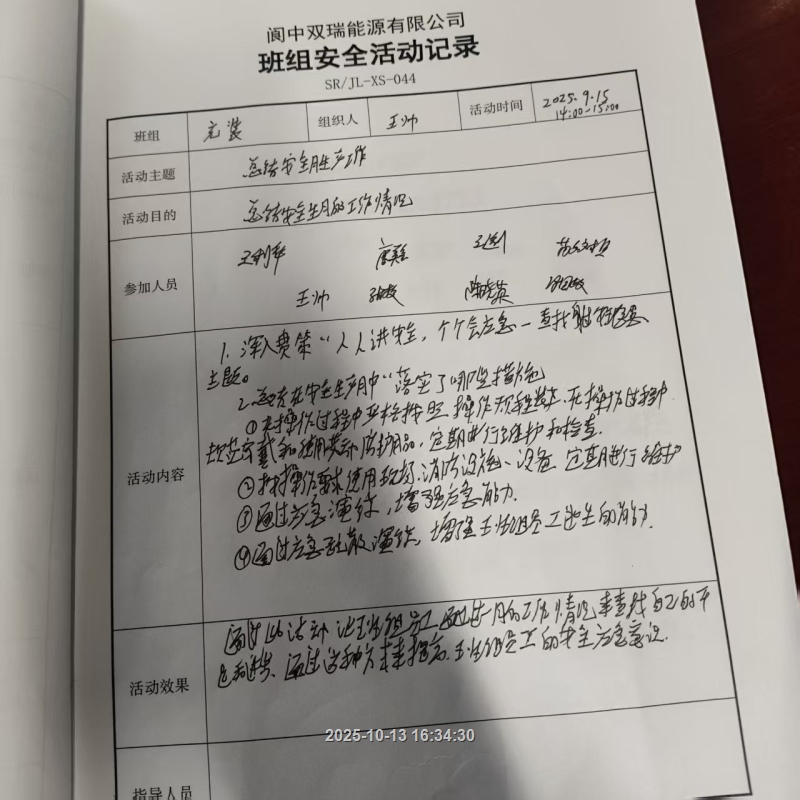 阆中双瑞能源有限公司
班组安全活动记录
SR/JL-XS-044
班组 充装 组织人 王帅 活动时间 2025.9.15
14:00-15:00
活动主题 总结安全月生产工作
活动目的 总结安全生月的工作情况
参加人员
王帅
活动内容
1. 深入贯策“人人讲安全,个个会应急—查找身边
主题。
2. 总结在安全生产月中“落实了哪些措施
①在操作过程中严格按照操作规程 在操作过程中
穿戴和使用劳动防护用品,定期进行维护和检查.
②按操作要求使用现场消防设施、设备 定期进行维护
③通过应急演练,增强应急能力.
④通过应急疏散演练,增强班组员工逃生的能力.
活动效果
通过此活动 让班组员工 通过 月的工作情况来查找自己的不
足和进步. 通过这种方 来提高班组员工的安全应急意识.
指导人员
2025-10-13 16:34:30